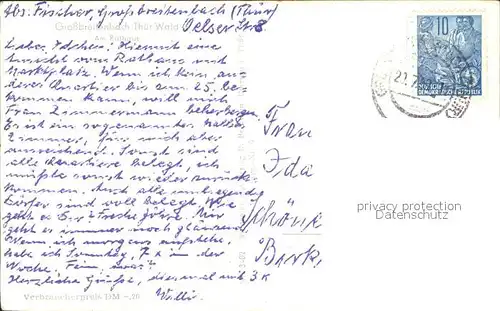 Abs. Fischer, Großbreitenbach (Thür)
Oelser Str. 8
Großbreitenbach Thür. Wald
Am Rathaus
Liebes Idchen! Hiermit eine
Ansicht vom Rathaus mit
Marktplatz. Wenn ich kein an-
deres Quartier bis zum 25. be-
kommen kann, will mich
Frau Zimmermann beherbergen.
Es ist ein sogenanntes halbes
Zimmer, für mich aber
ausreichend. Sonst sind
alle Quartiere belegt, ich
müßte sonst wieder zurück-
kommen. Auch alle umliegenden
Dörfer sind voll belegt. Wie
geht es
geht es immer noch glänzend.
Wenn ich morgens aufstehe,
habe ich Sonntag, 7 x in der
Woche. Fein, was?
Herzliche Grüße, diesmal mit 3 K
Willi
Verbraucherpreis DM -.20
Frau
Ida
Schöne
Berk
10
DEUTSCHE DEMOKRATISCHE REPUBLIK
privacy protection
watermark